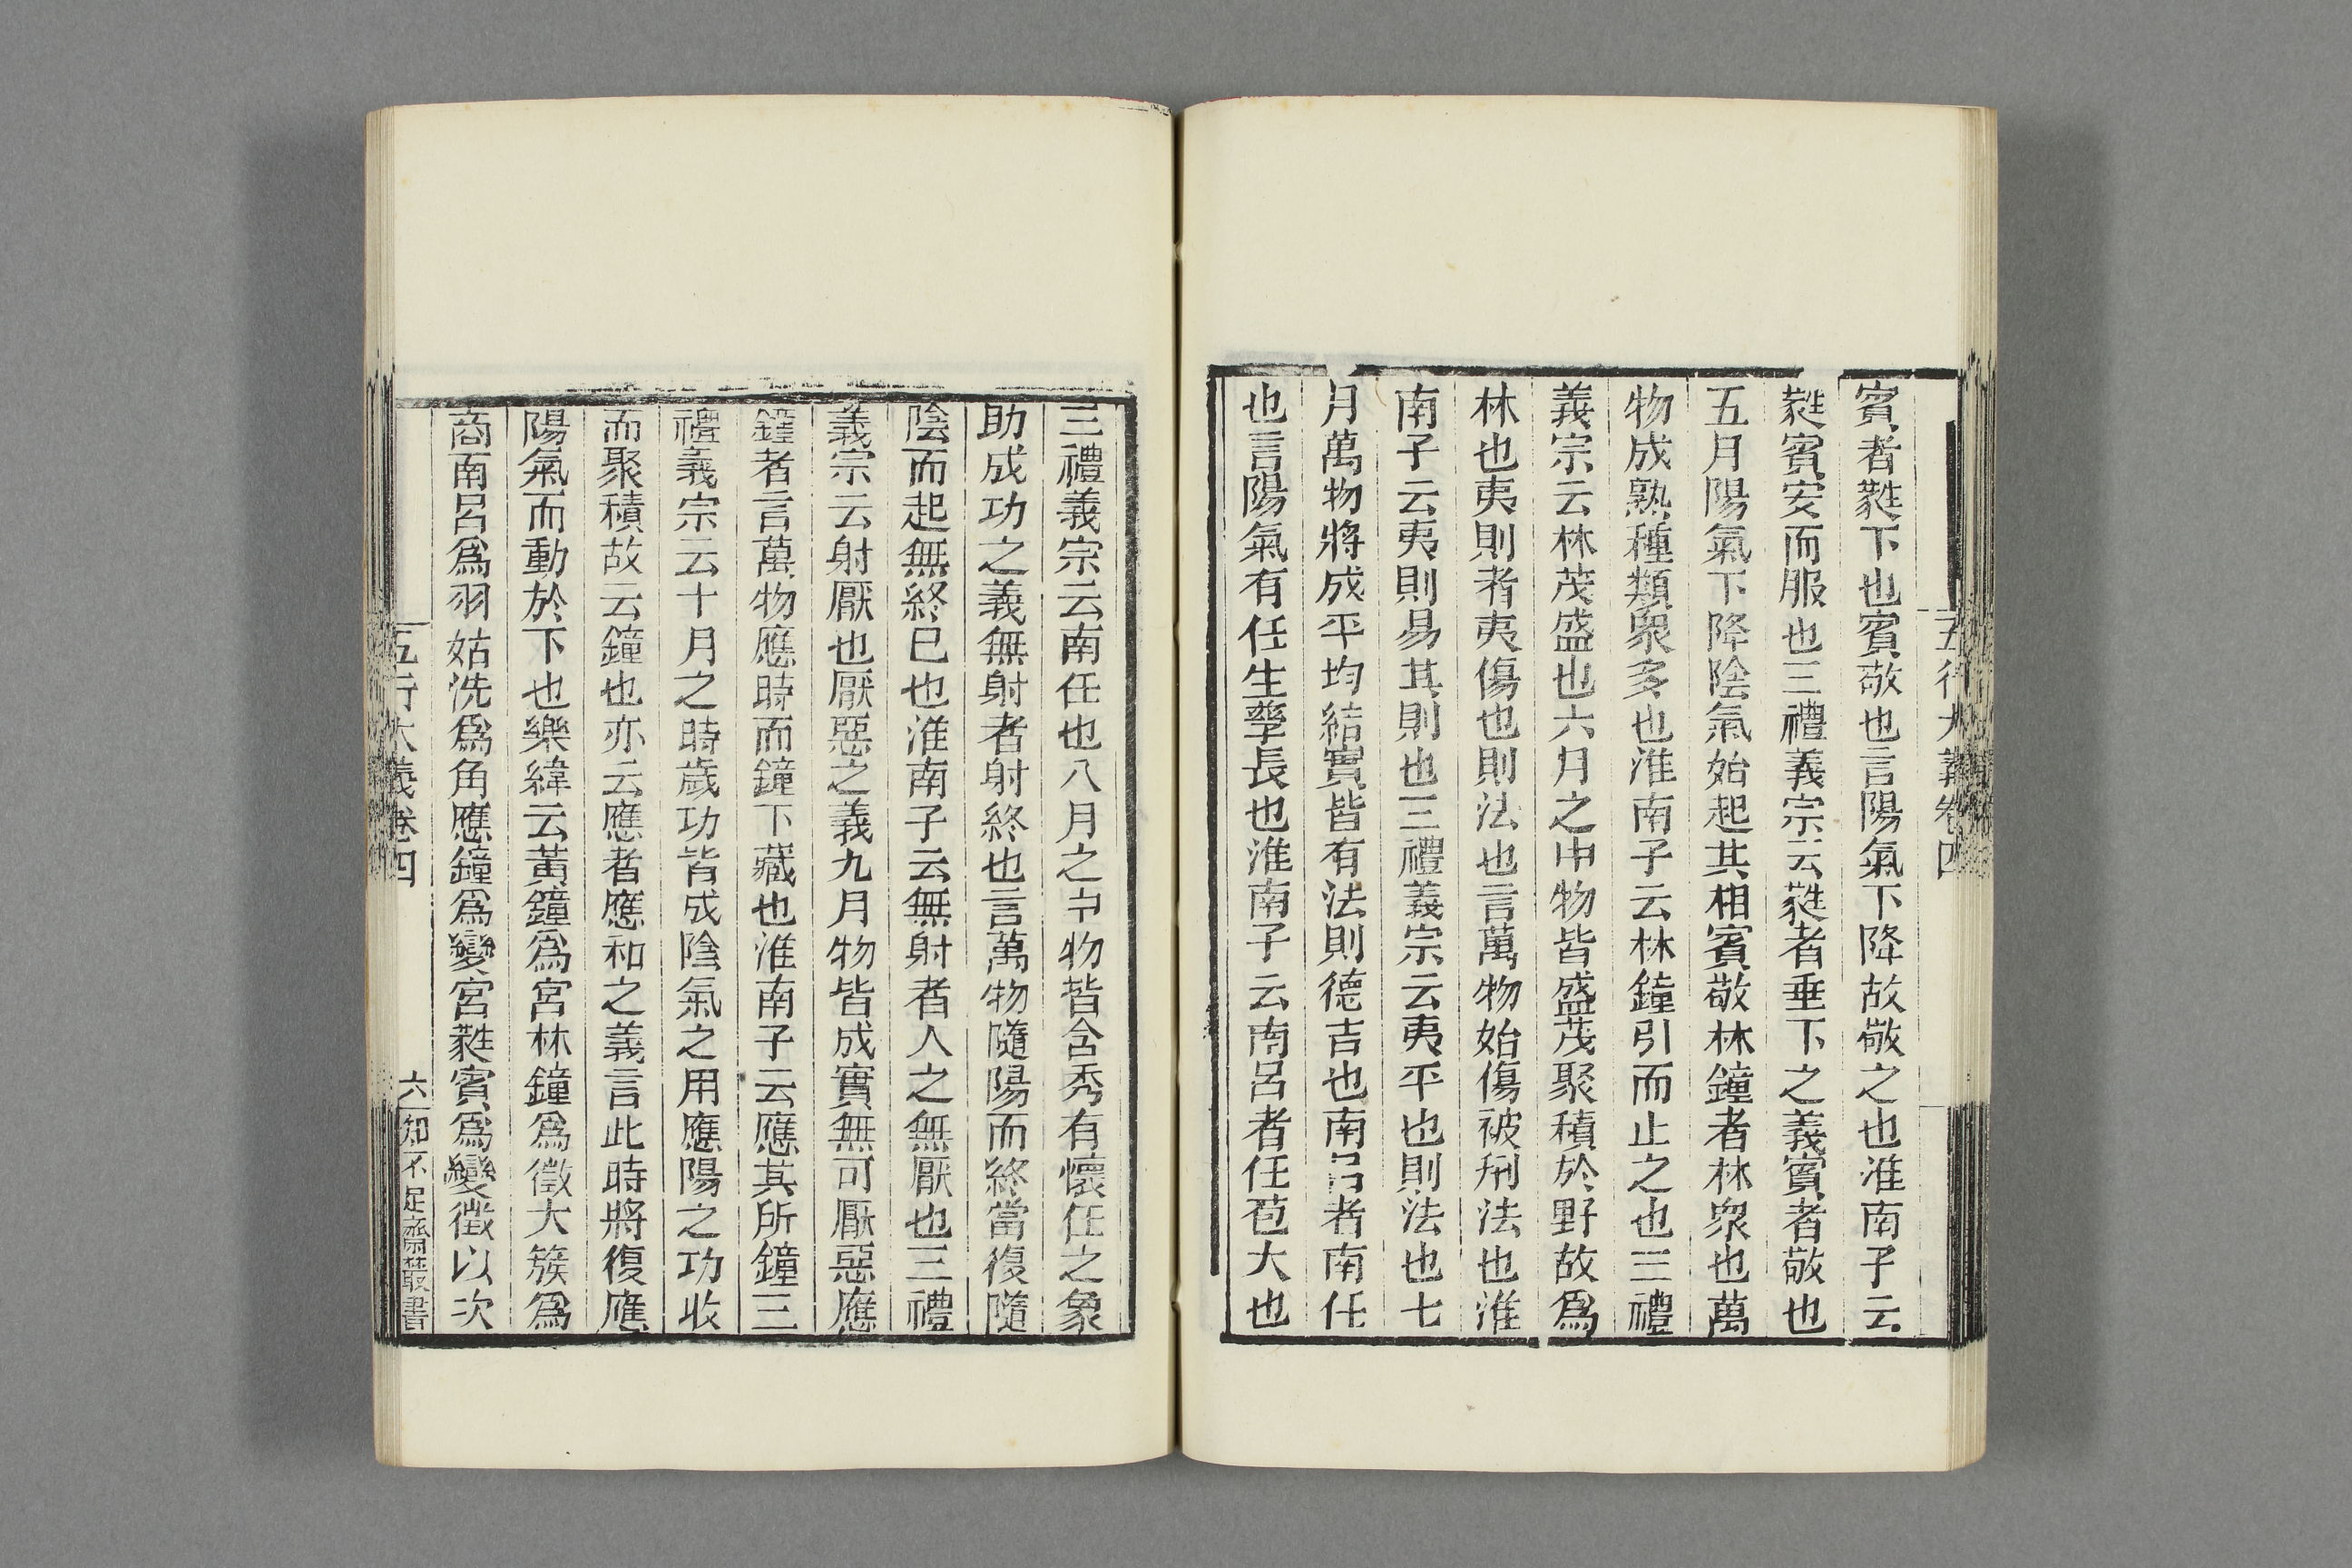 五行大義卷四
賓者蕤下也賓敬也言陽氣下降故敬之也淮南子云
蕤賓安而服也三禮義宗云蕤者垂下之義賓者敬也
五月陽氣下降陰氣始起其相賓敬林鐘者林衆也萬
物成熟種類衆多也淮南子云林鐘引而止之也三禮
義宗云林茂盛也六月之中物皆盛茂聚積於野故爲
林也夷則者夷傷也則法也言萬物始傷被刑法也淮
南子云夷則易其則也三禮義宗云夷平也則法也七
月萬物將成平均結實皆有法則德吉也南呂者南任
也言陽氣有任生孳長也淮南子云南呂者任苞大也
三禮義宗云南任也八月之中物皆含秀有懷任之象
助成功之義無射者射終也言萬物隨陽而終當復隨
陰而起無終已也淮南子云無射者人之無厭也三禮
義宗云射厭也厭惡之義九月物皆成實無可厭惡應
鐘者言萬物應時而鐘下藏也淮南子云應其所鐘三
禮義宗云十月之時歲功皆成陰氣之用應陽之功收
而聚積故云鐘也亦云應者應和之義言此時將復應
陽氣而動於下也樂緯云黃鐘爲宮林鐘爲徵大簇爲
商南呂爲羽姑洗爲角應鐘爲變宮蕤賓爲變徵以次
五行大義卷四 六 知不足齋叢書